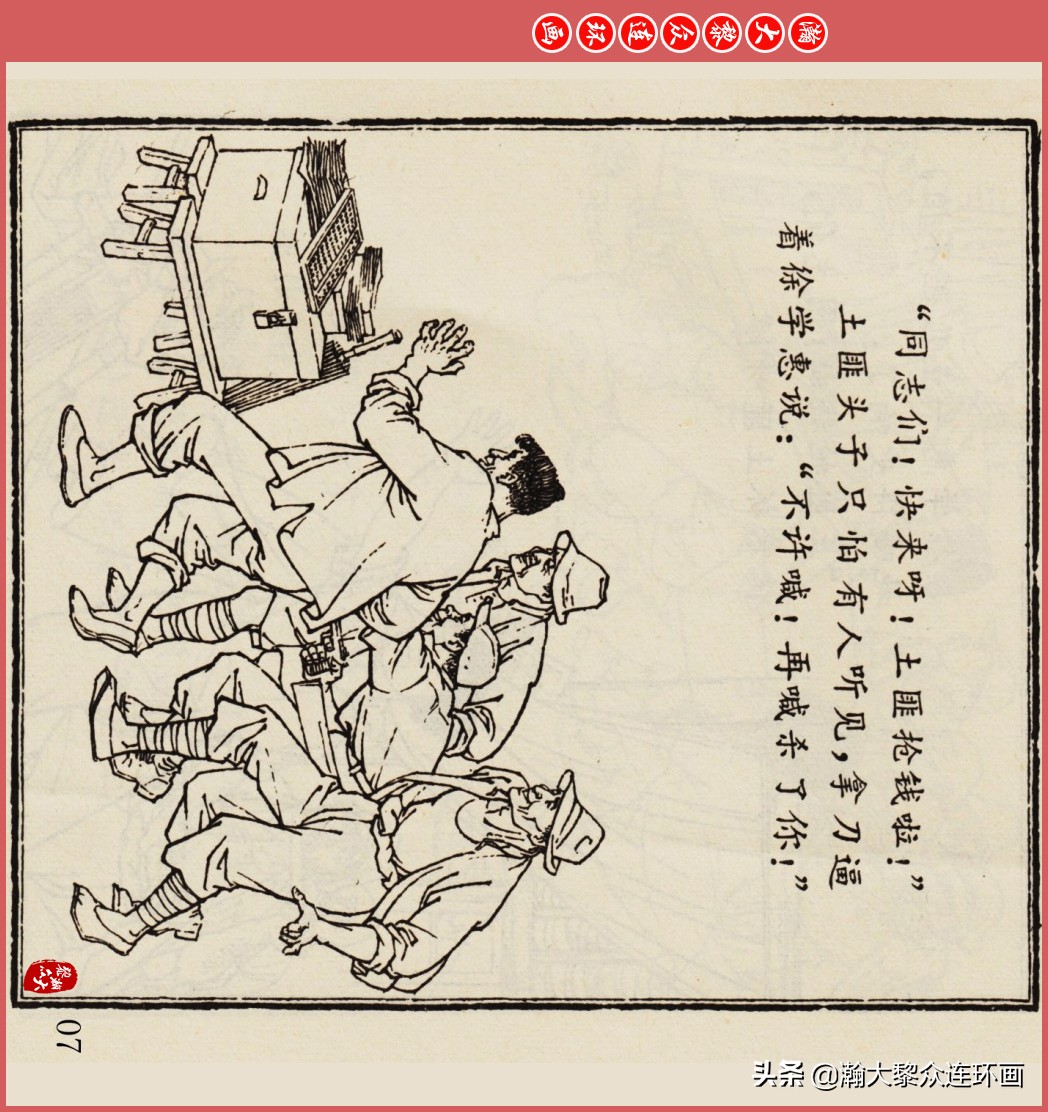 瀚大黎众连环画
“同志们！快来呀！土匪抢钱啦！”
土匪头子只怕有人听见，拿刀逼
着徐学惠说：“不许喊！再喊杀了你！”
瀚大
黎众
07
头条 @瀚大黎众连环画